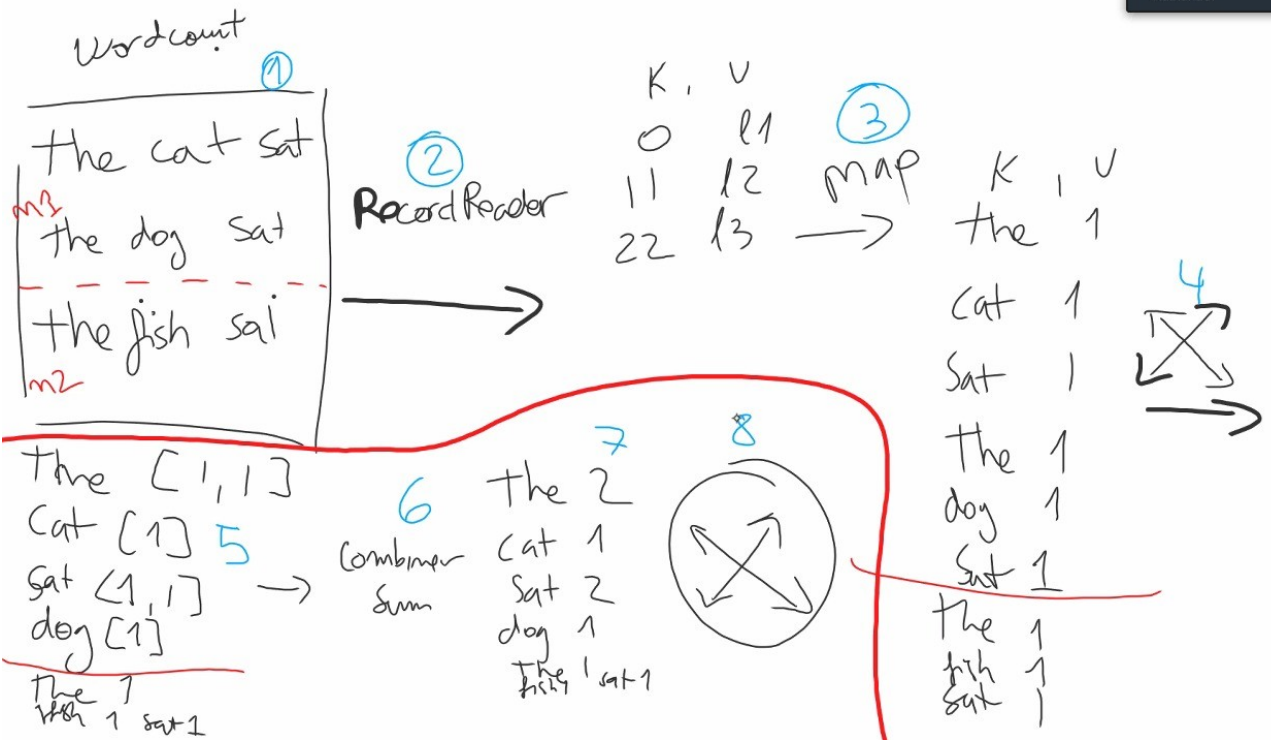 Wordcount
1
the cat sat
m1
the dog sat
the fish sat
m2
2
RecordReader
K, V
0 l1
11 l2
22 l3
3
map
K, V
the 1
cat 1
sat 1
the 1
dog 1
sat 1
the 1
fish 1
sat 1
4
the [1,1]
cat [1]
sat [1,1]
dog [1]
the 1
fish 1 sat 1
5
6
combiner
sum
7
the 2
cat 1
sat 2
dog 1
the 1
fish 1 sat 1
8